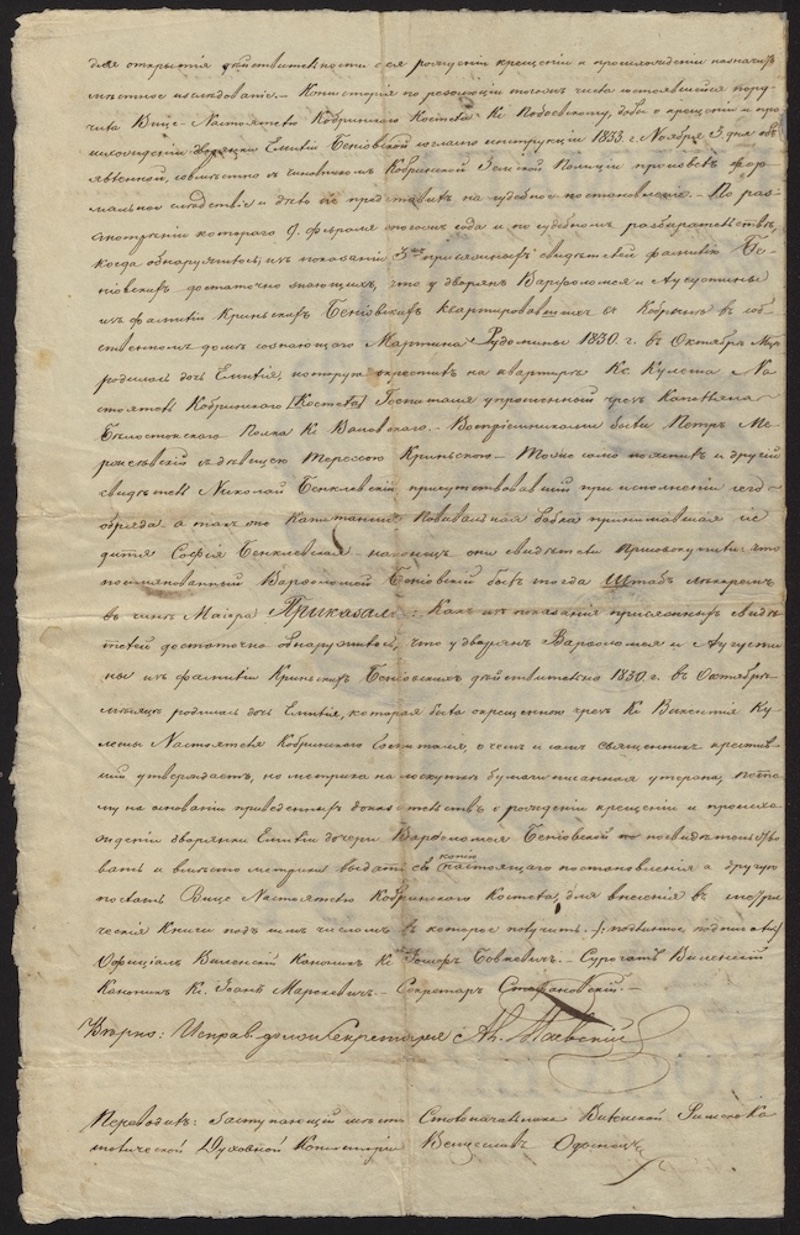 для открытія дѣйствительности о ея рожденіи крещеніи и происхожденіи назначить
мѣстное изслѣдованіе. – Консисторія по резолюціи тогожъ числа состоявшейся пору-
чила Вице-Настоятелю Кобринского Костела Кс. Побоевскому, дабы о крещеніи и про
исхожденіи дворянки Емиліи Беніовской согласно инструкціи 1833. г. Ноября 3. дня объ
явленной, совмѣстно съ чиновникомъ Кобринской Земской Полиціи произвелъ фор-
мальное слѣдствіе и дѣло сіе представилъ на судебное постановленіе. – По раз-
смотреніи котораго 9. февраля сего года и по судебномъ разбирательствѣ,
когда обнаружилось, изъ показаній 3хъ присяжныхъ свидѣтелей фамилію Бе-
ніовскихъ достаточно знающихъ, что у дворянъ Варфоломея и Августины
изъ фамиліи Криньскихъ Беніовскихъ квартировавшихъ въ Кобринѣ въ соб-
ственномъ домѣ сознающаго Мартина Рудомины 1830. г. въ Октябрѣ Мцѣ
родилась дочь Емилія, которую окрестилъ на квартирѣ Кс. Кулеша На
стоятель Кобринского [Костела] Госпиталя упрошенный чрезъ Капеляна
Бѣлостокского Полка Кс. – Воспріемниками были Петръ Ме-
съ дѣвицею Терессою Криньскою – Тоже само пояснилъ и другій
свидѣтель Николай Бенклевскій присутствовавшій при исполненіи сего
обряда а такъ же Повивальная бабка принимавшая сіе
дитя Софія Бенклевская – наконецъ они свидѣтели присовокупили: что
поименованный Варфоломей Беніовскій былъ тогда Штабъ лѣкаремъ
въ чинѣ Маіора Приказали: Какъ изъ показанія присяжныхъ свидѣ
телей достаточно обнаружилось, что у дворянъ Варфоломея и Августи
ны изъ фамиліи Криньскихъ Беніовскихъ дѣйствительно 1830. г. въ Октябрѣ
мѣсяцѣ родилась дочь Емилія, которая была окрещенною чрезъ Кс. Викентія Ку
лешы Настоятеля Кобринского Госпиталя, о чемъ и самъ священникъ крестив-
шій утверждаетъ, но метрика на лоскуткѣ бумаги писанная утеряна, пото
му на основаніи приведенныхъ доказательствъ о рожденіи крещеніи и происхо
жденіи дворянки Емиліи дочери Варфоломея Беніовской посвидѣтельство
вать и вмѣсто метрики выдать ей копію настоящаго постановленія а другую
послать Вице Настоятелю Кобринского Костела, для внесенія въ метри
ческія Книги подъ тѣмъ числомъ въ которое получитъ. –/: подлинное подписали:/
Офиціалъ Виленскій Каноникъ Кс. Бовкевичъ. – Сурогатъ Виленскій
Каноникъ Кс. Іоанъ Марцкевичъ. – Секретарь Стефановскій. –
Вѣрно: Исправ. должн. Секретаря
Переводилъ: Заступающій мѣсто Столоначальника Виленской Римско Ка
толической Духовной Консисторіи Венцеславъ